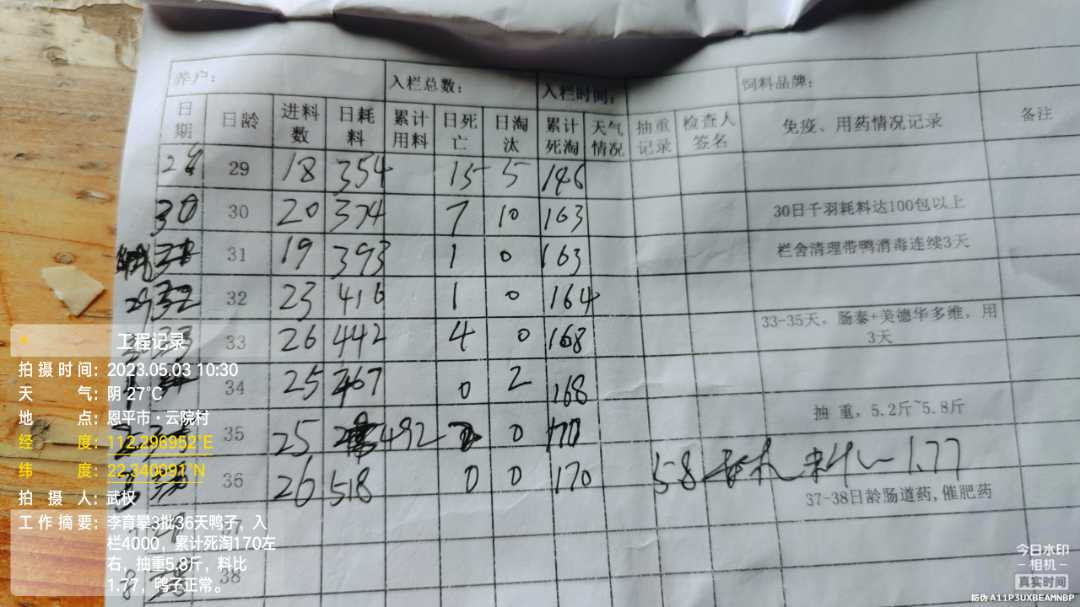 养户： 入栏总数： 入栏时间： 饲料品牌：
日期 日龄 进料数 日耗料 累计用料 日死亡 日淘汰 累计死淘 天气情况 抽重记录 检查人签名 免疫、用药情况记录 备注
29 18 354 15 5 146
30 30 20 374 7 10 163 30日千羽耗料达100包以上
31 19 393 1 0 163 栏舍清理带鸭消毒连续3天
32 23 416 1 0 164
33 26 442 4 0 168 33-35天，肠泰+美德华多维，用
3天
34 25 467 0 2 168
抽重，5.2斤~5.8斤
35 25 492 0 170
36 26 518 0 0 170 5.8 料 1.77
37-38日龄肠道药，催肥药
38
工程记录
拍摄时间：2023.05.03 10:30
天气：阴 27°C
地点：恩平市·云院村
经度：112.296952°E
纬度：22.340091°N
拍摄人：武权
工作摘要：李育攀3批36天鸭子，入
栏4000，累计死淘170左
右，抽重5.8斤，料比
1.77，鸭子正常。
今日水印
相机
真实时间
防伪 A11P3UXBEAMNBP